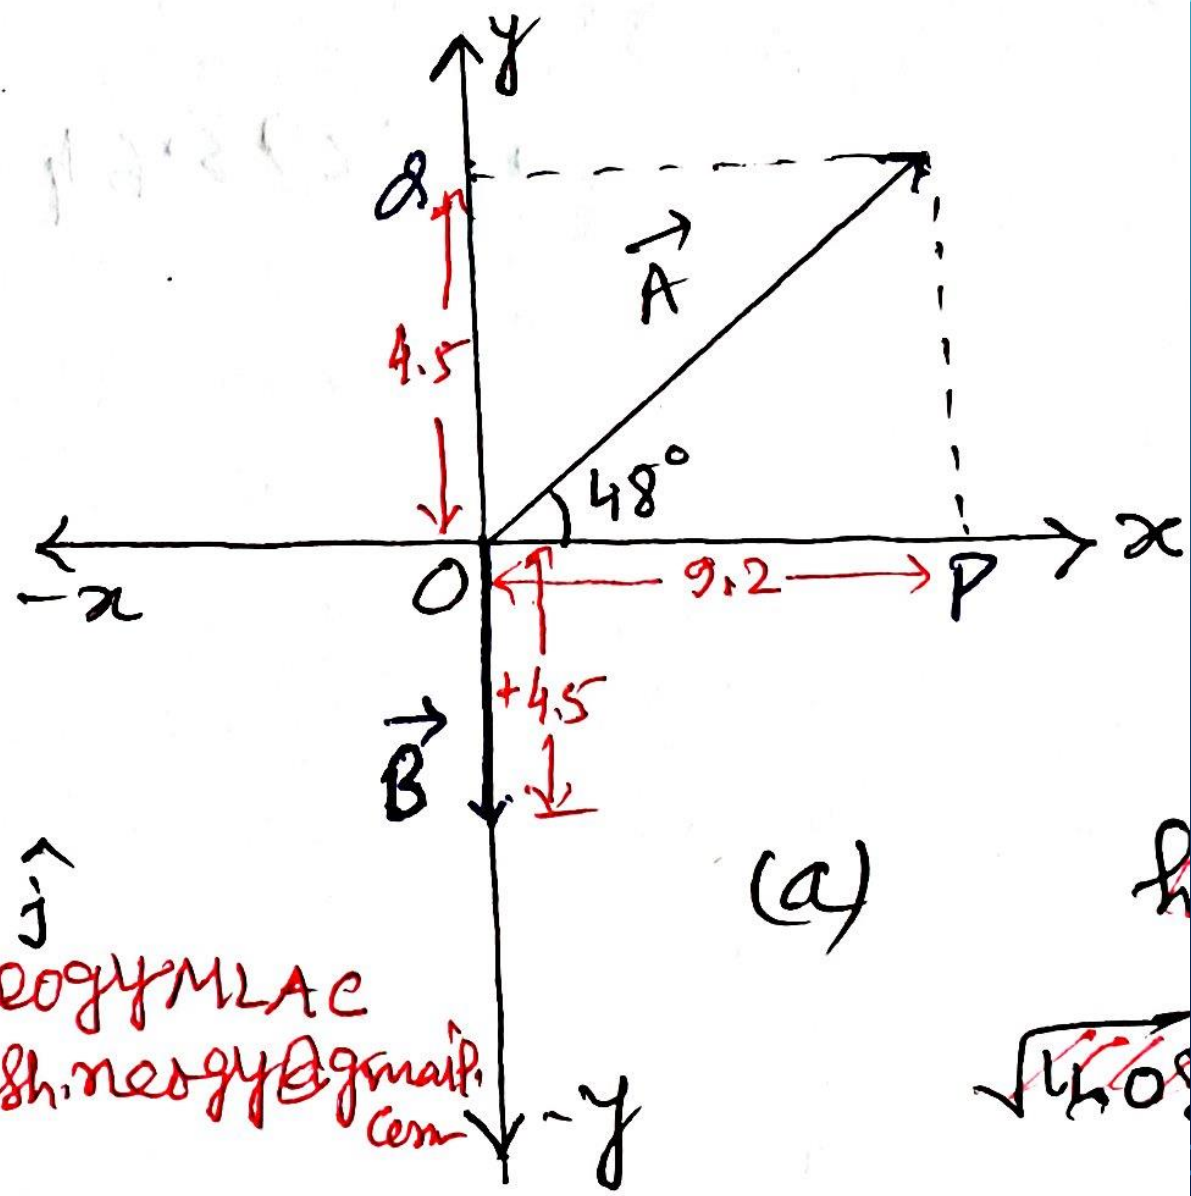 y
Q
A
4.5
48°
x
-x
O
9.2
P
+4.5
B
(a)
ĵ
eogyMLAC
sh.neogy@gmail.
com
-y